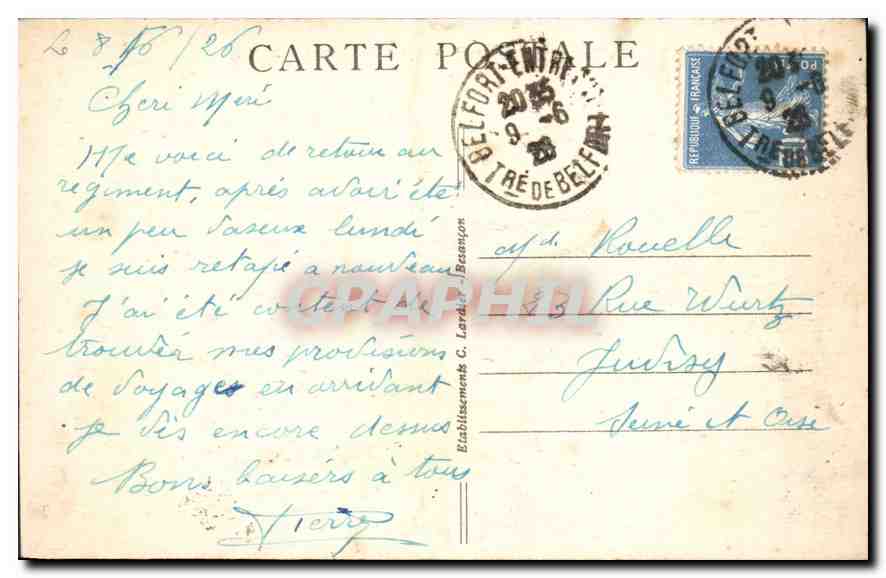 CARTE POSTALE
L 8/6/26
Cheri Meré
Me voici de retour au
regiment, après avoir été
un peu vaseux lundi
je suis retapé a nouveau
J'ai été content de
trouver mes provisions
de voyages en arrivant
je vis encore dessus
Bons baisers à tous
Pierre
Etablissements C. Lardier - Besançon
BELFORT-ENTRE
20 35
9 -6
26
TRE DE BELF
POSTES
REPUBLIQUE FRANÇAISE
BELFORT
20 35
9 -6
26
TRE DE BELF
Md. Rouelle
23 Rue Wurtz
Juvisy
Seine et Oise
CPAPHIL